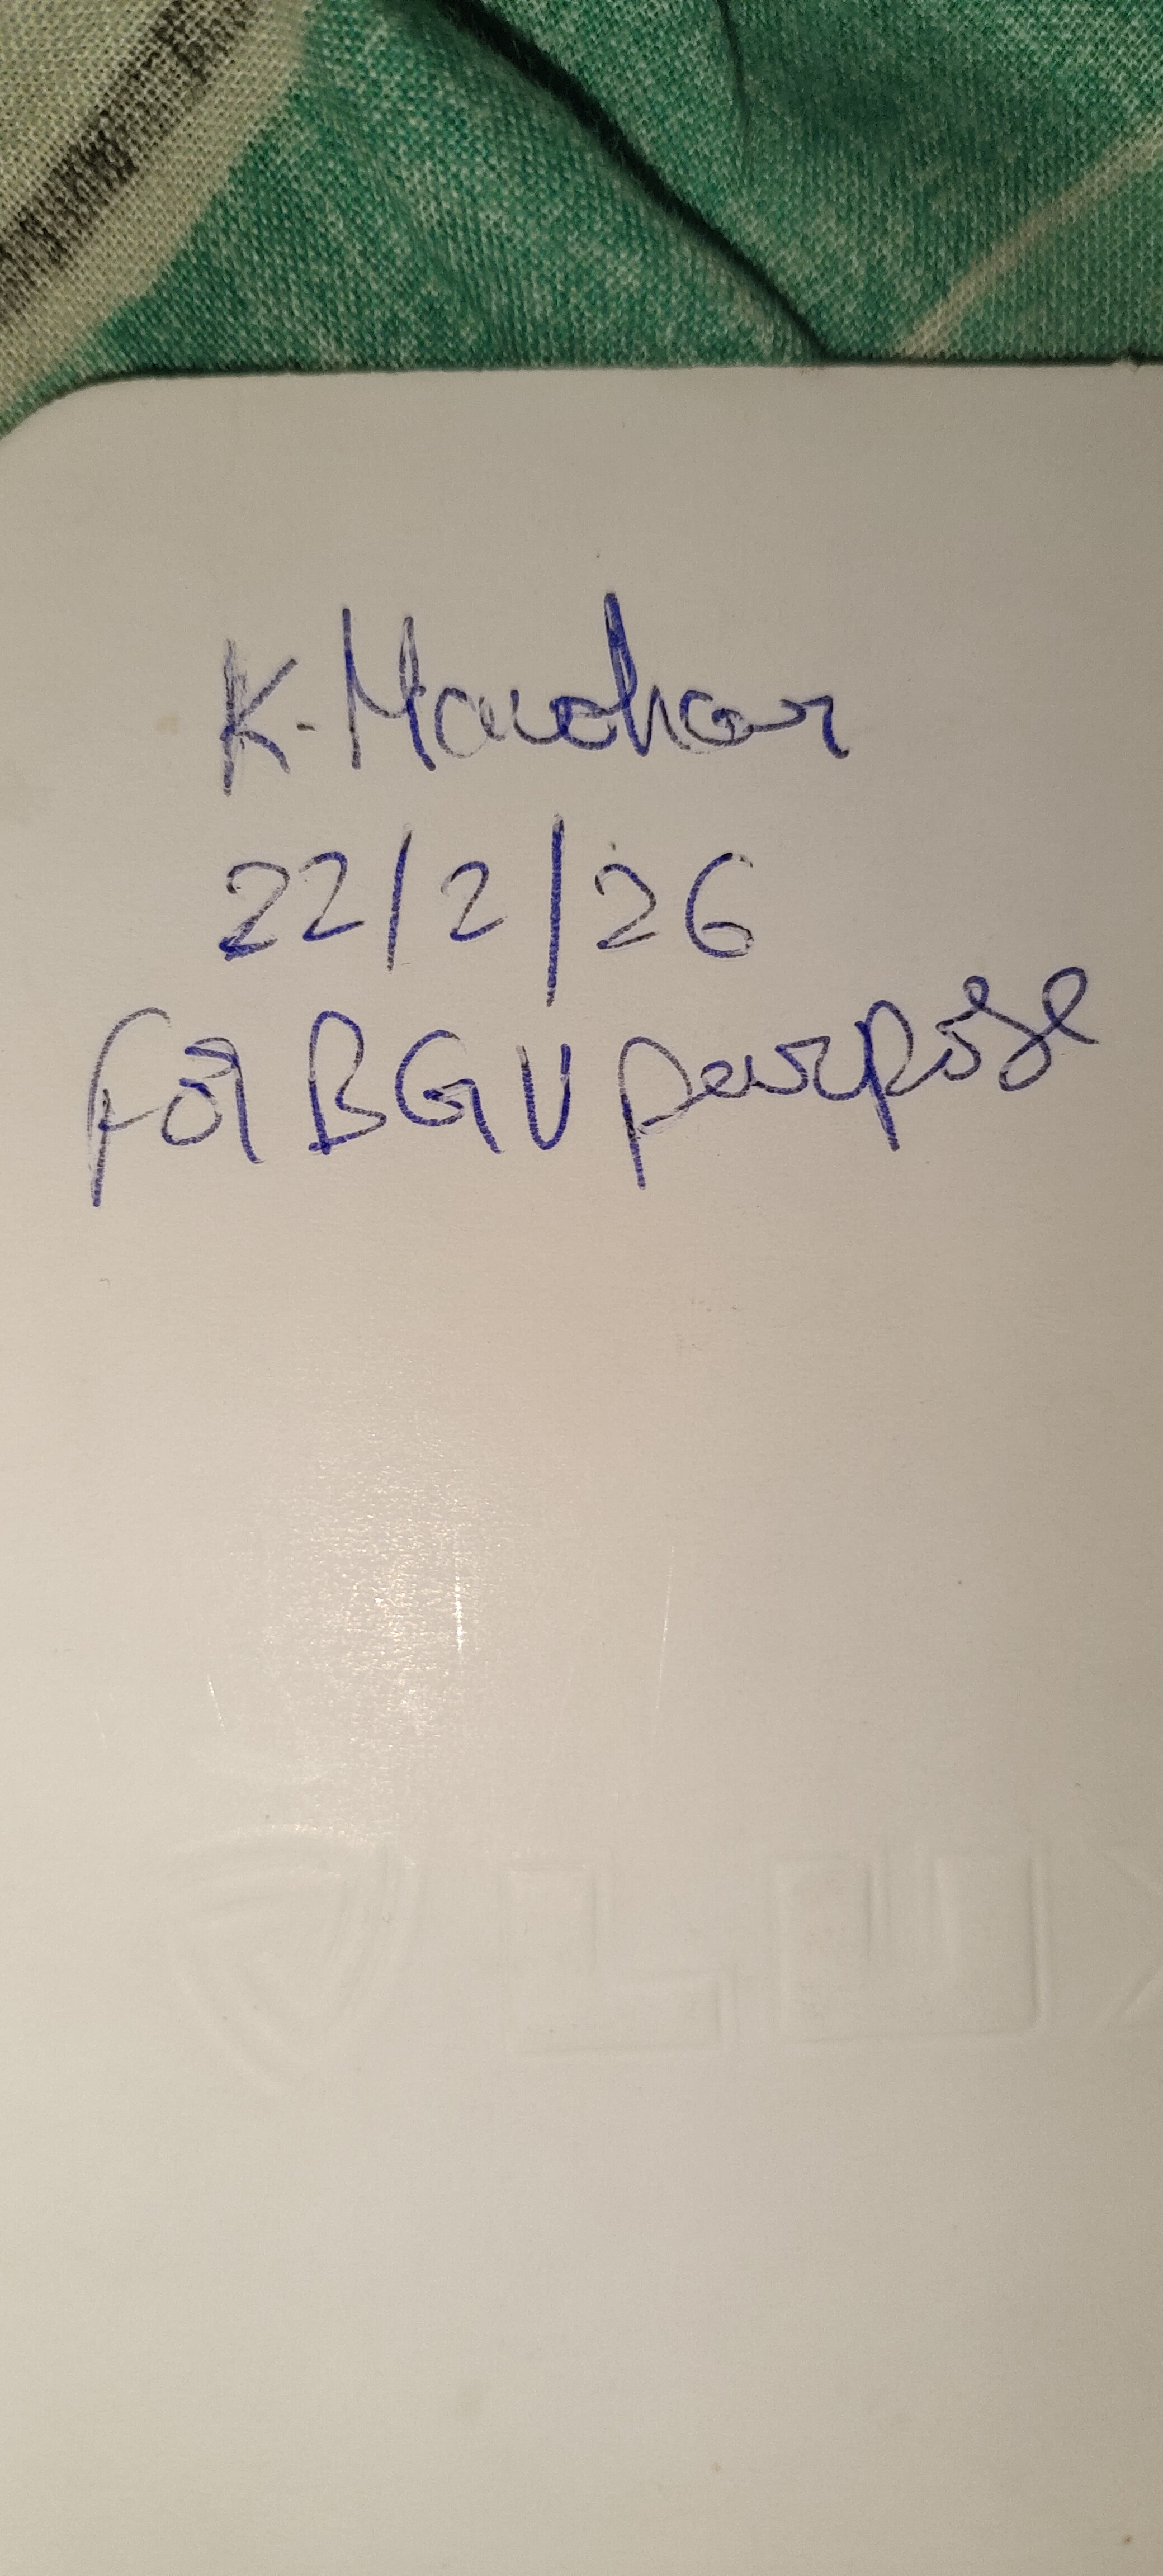 K. Manohar
22/2/26
For BGV purpose